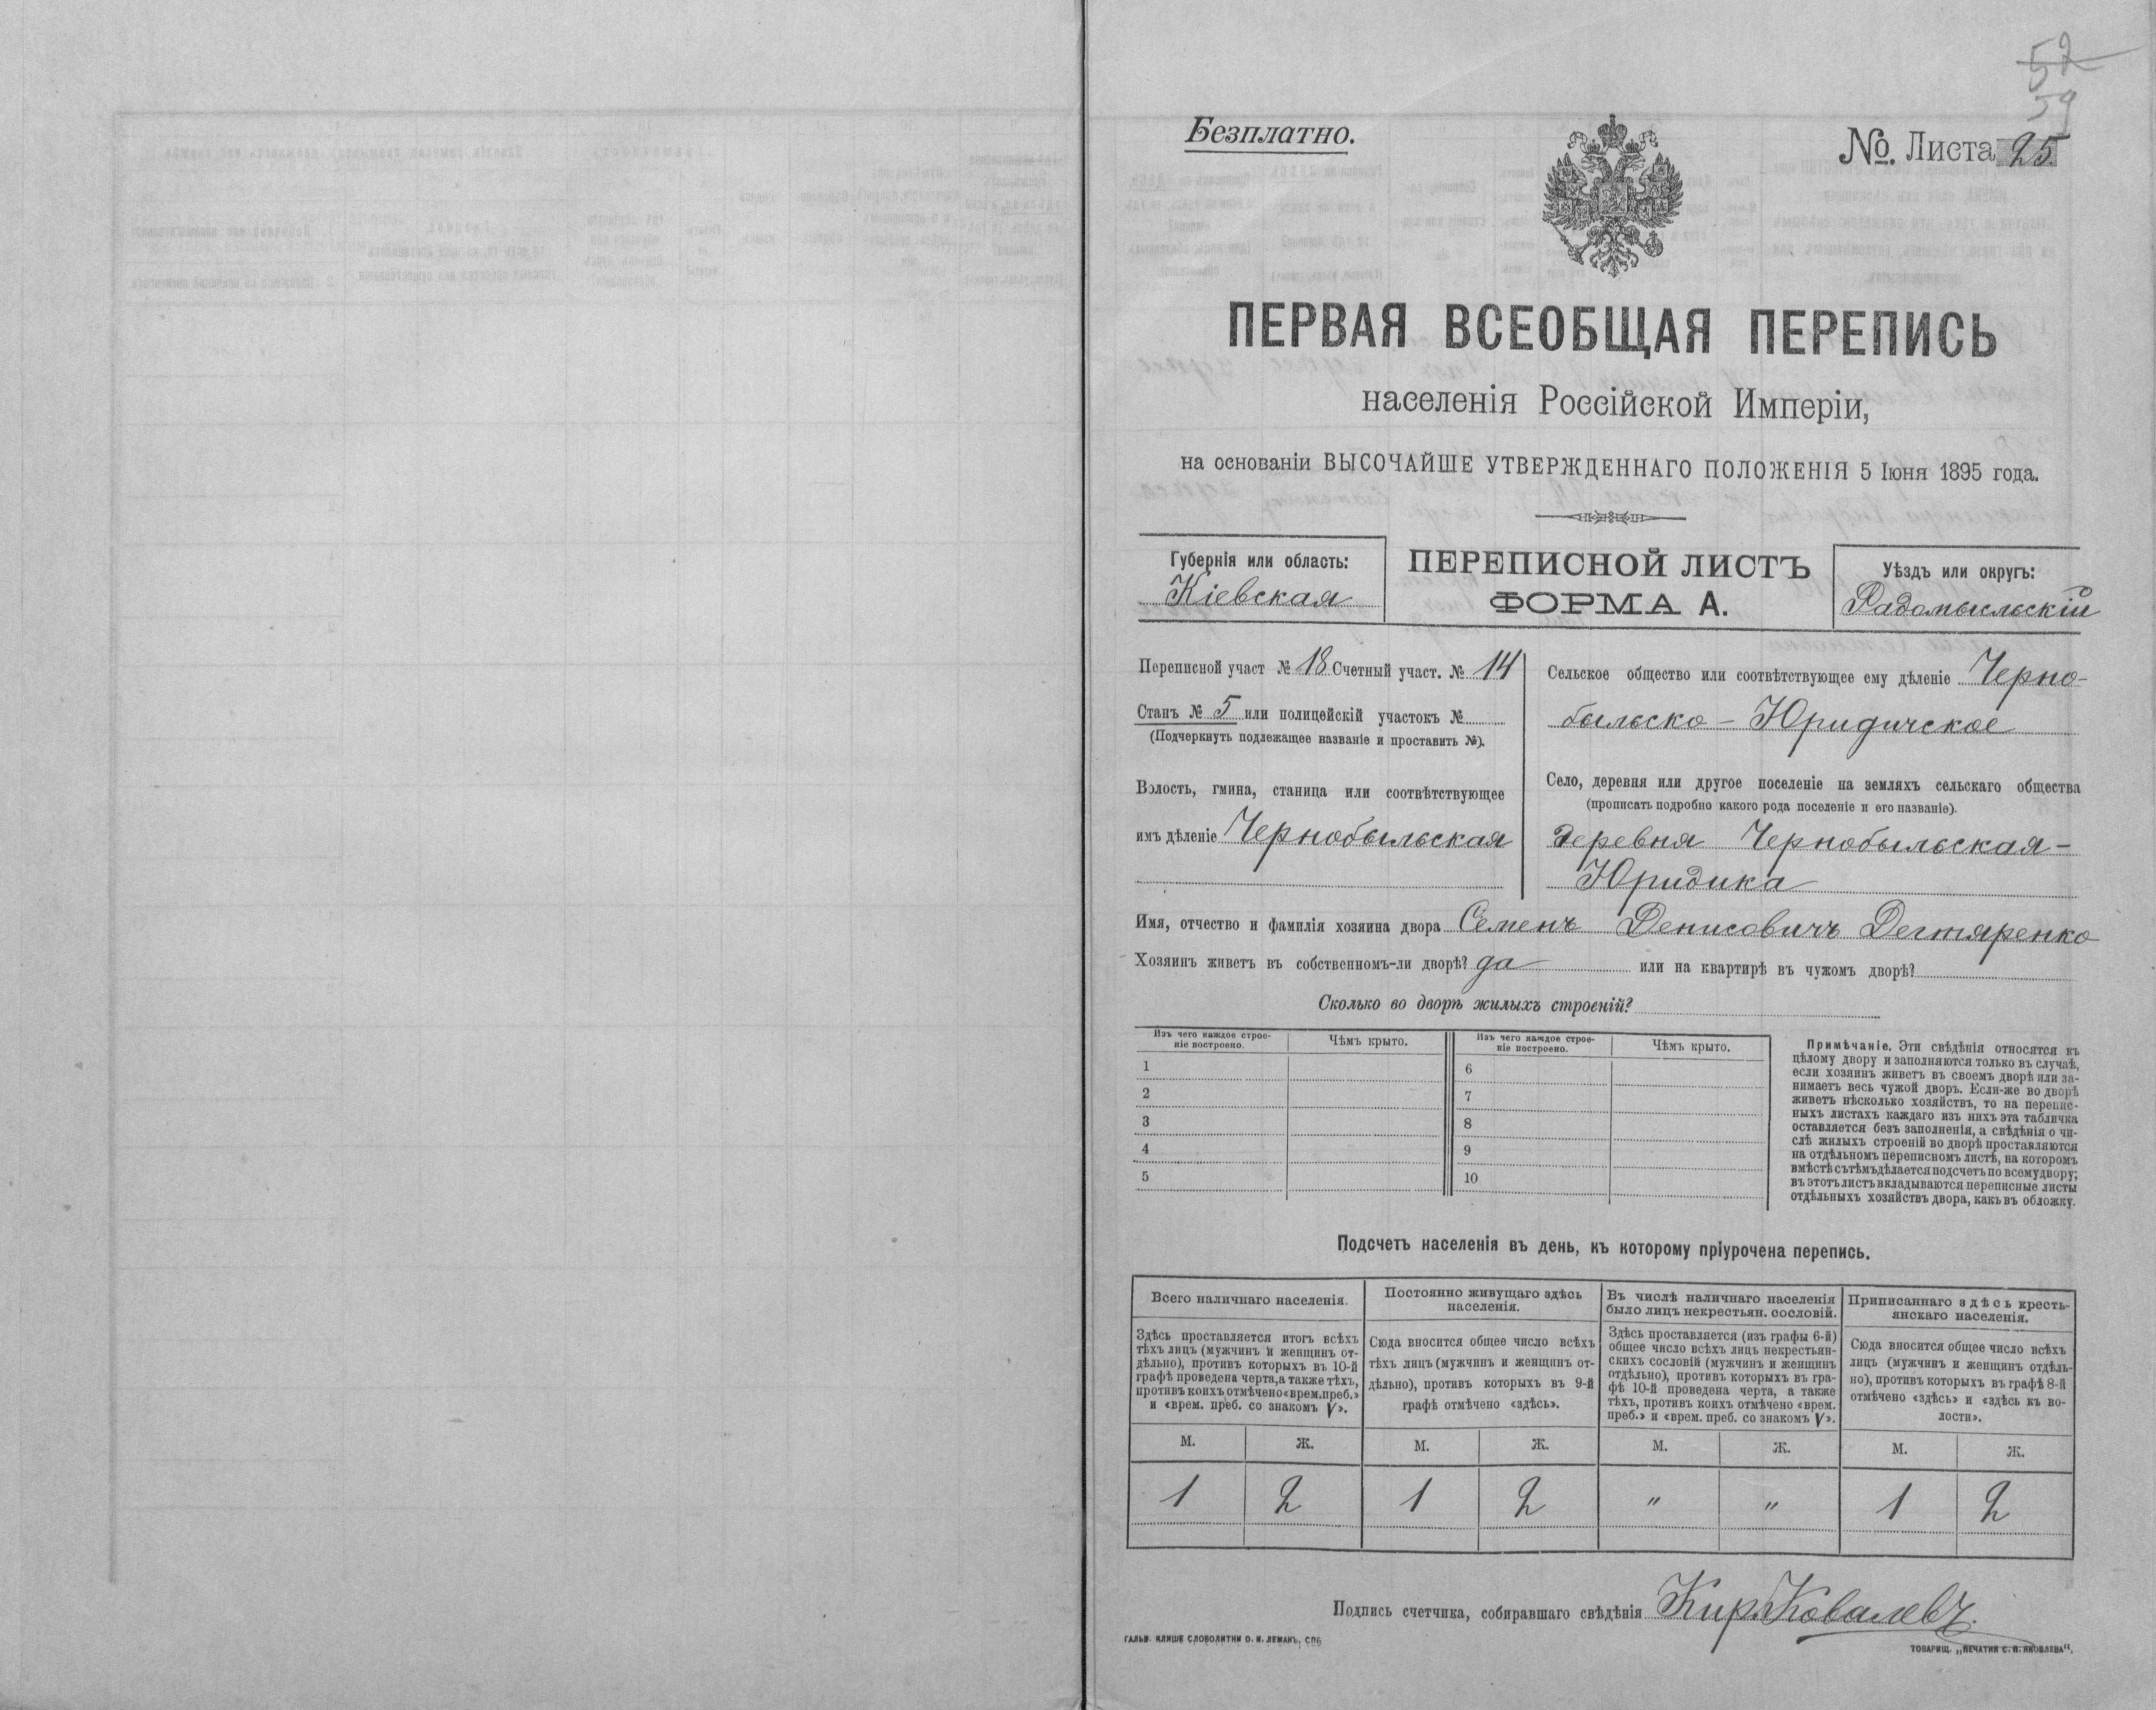 52
59
Безплатно.
№. Листа 25.
ПЕРВАЯ ВСЕОБЩАЯ ПЕРЕПИСЬ
населенія Россійской Имперіи,
на основаніи ВЫСОЧАЙШЕ УТВЕРЖДЕННАГО ПОЛОЖЕНІЯ 5 Іюня 1895 года.
Губернія или область:
Кіевская
ПЕРЕПИСНОЙ ЛИСТЪ
ФОРМА А.
Уѣздъ или округъ:
Радомысльскій
Переписной участ № 18 Счетный участ. № 14
Станъ № 5 или полицейскій участокъ №
(Подчеркнуть подлежащее названіе и проставить №).
Волость, гмина, станица или соотвѣтствующее
имъ дѣленіе Чернобыльская
Сельское общество или соотвѣтствующее ему дѣленіе Черно-
быльско - Юридичское
Село, деревня или другое поселеніе на земляхъ сельскаго общества
(прописать подробно какого рода поселеніе и его названіе).
деревня Чернобыльская -
Юридика
Имя, отчество и фамилія хозяина двора Семенъ Денисовичъ Дегтяренко
Хозяинъ живетъ въ собственномъ-ли дворѣ? да или на квартирѣ въ чужомъ дворѣ?
Сколько во дворѣ жилыхъ строеній?
Изъ чего каждое строе-
ніе построено.
Чѣмъ крыто.
Изъ чего каждое строе-
ніе построено.
Чѣмъ крыто.
1 6
2 7
3 8
4 9
5 10
Примѣчаніе. Эти свѣдѣнія относятся къ
цѣлому двору и заполняются только въ случаѣ,
если хозяинъ живетъ въ своемъ дворѣ или за-
нимаетъ весь чужой дворъ. Если-же во дворѣ
живетъ нѣсколько хозяйствъ, то на перепис-
ныхъ листахъ каждаго изъ нихъ эта табличка
оставляется безъ заполненія, а свѣдѣнія о чи-
слѣ жилыхъ строеній во дворѣ проставляются
на отдѣльномъ переписномъ листѣ, на которомъ
вмѣстѣ съ тѣмъ дѣлается подсчетъ по всему двору;
въ этотъ листъ вкладываются переписные листы
отдѣльныхъ хозяйствъ двора, какъ въ обложку.
Подсчетъ населенія въ день, къ которому пріурочена перепись.
Всего наличнаго населенія.
Здѣсь проставляется итогъ всѣхъ
тѣхъ лицъ (мужчинъ и женщинъ от-
дѣльно), противъ которыхъ въ 10-й
графѣ проведена черта, а также тѣхъ,
противъ коихъ отмѣчено «врем. преб.»
и «врем. преб. со знакомъ V».
Постоянно живущаго здѣсь
населенія.
Сюда вносится общее число всѣхъ
тѣхъ лицъ (мужчинъ и женщинъ от-
дѣльно), противъ которыхъ въ 9-й
графѣ отмѣчено «здѣсь».
Въ числѣ наличнаго населенія
было лицъ некрестьян. сословій.
Здѣсь проставляется (изъ графы 6-й)
общее число всѣхъ лицъ некрестьян-
скихъ сословій (мужчинъ и женщинъ
отдѣльно), противъ которыхъ въ гра-
фѣ 10-й проведена черта, а также
тѣхъ, противъ коихъ отмѣчено «врем.
преб.» и «врем. преб. со знакомъ V».
Приписаннаго здѣсь кресть-
янскаго населенія.
Сюда вносится общее число всѣхъ
лицъ (мужчинъ и женщинъ отдѣль-
но), противъ которыхъ въ графѣ 8-й
отмѣчено «здѣсь» и «здѣсь къ во-
лости».
М. Ж. М. Ж. М. Ж. М. Ж.
1 2 1 2 " " 1 2
Подпись счетчика, собиравшаго свѣдѣнія Кир. Ковалевъ.
ГАЛЬВ. КЛИШЕ СЛОВОЛИТНИ О. И. ЛЕМАНЪ, СПБ
ТОВАРИЩ. „ПЕЧАТНЯ С. П. ЯКОВЛЕВА".